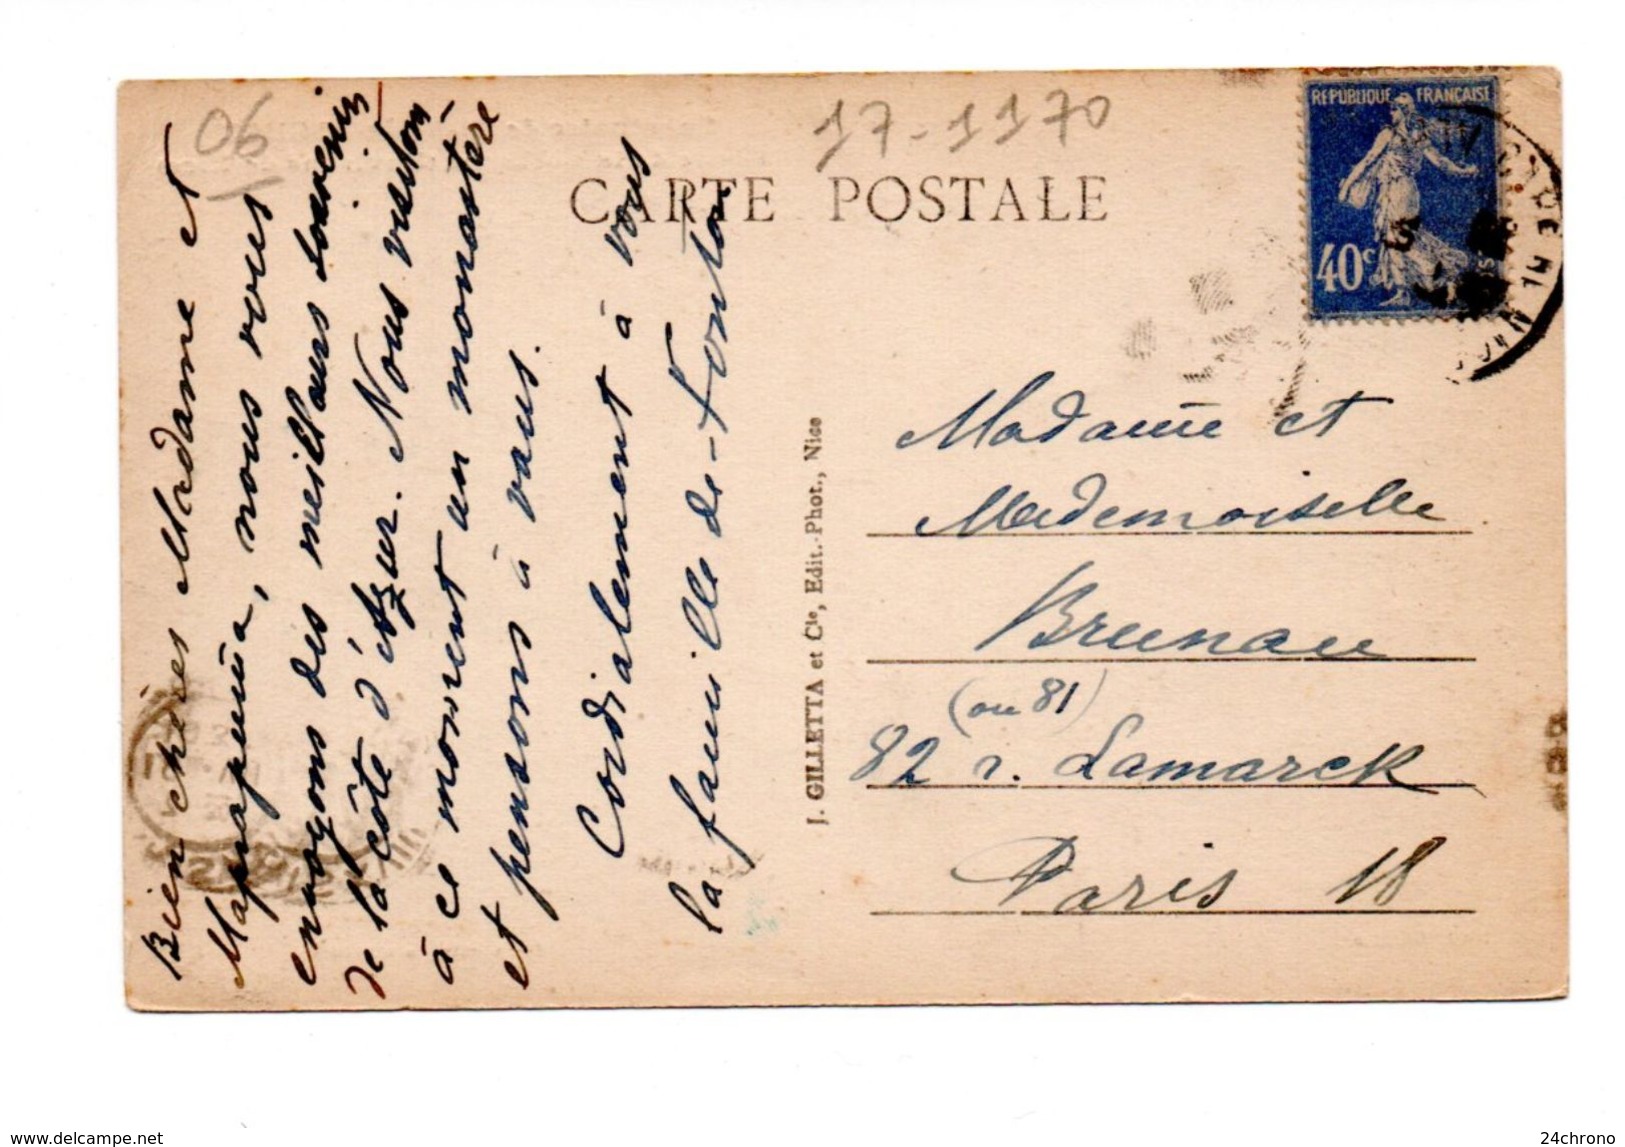 06
17-1170
CARTE POSTALE
REPUBLIQUE FRANÇAISE
40c
Bien chères Madame et
nous vous
envoyons des meilleurs souvenirs
de la côte d'Azur. Nous visitons
à ce moment un monastère
et pensons à vous.
Cordialement à vous
la famille de
J. GILLETTA et Cie, Edit.-Phot., Nice
Madame et
Mademoiselle
Brunau
(ou 81)
82 r. Lamarck
Paris 18
www.delcampe.net
24chrono